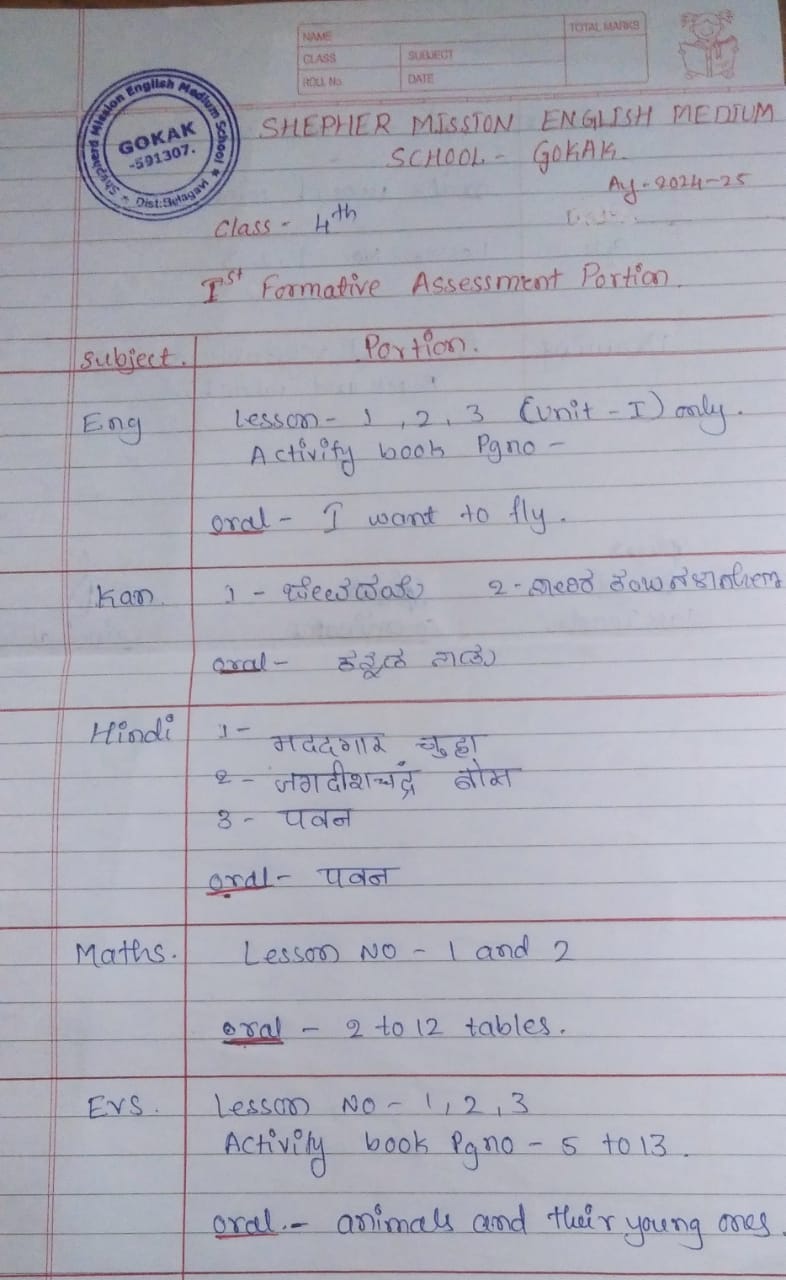 NAME
CLASS
SUBJECT
ROLL No
DATE
TOTAL MARKS
Shepherd Mission English Medium School
GOKAK
-591307.
Dist:Belagavi
SHEPHER MISSION ENGLISH MEDIUM
SCHOOL - GOKAK
Ay - 2024-25
Class - 4th
Ist Formative Assessment Portion.
Subject.
Portion.
Eng
Lesson - 1, 2, 3 (Unit - I) only.
Activity book Pgno -
oral - I want to fly.
Kan.
1 -
2 -
oral - ಕನ್ನಡ ನಾಡು
Hindi
1 -
मददगार चुहा
2 - जगदीशचंद्र बोस
3 - पवन
oral - पवन
Maths.
Lesson NO - 1 and 2
oral - 2 to 12 tables.
EVS.
Lesson NO - 1, 2, 3
Activity book Pgno - 5 to 13.
oral. - animals and their young ones.